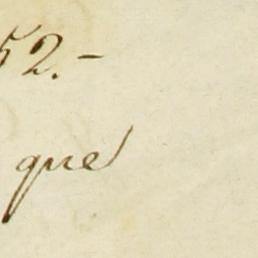 52.-
que